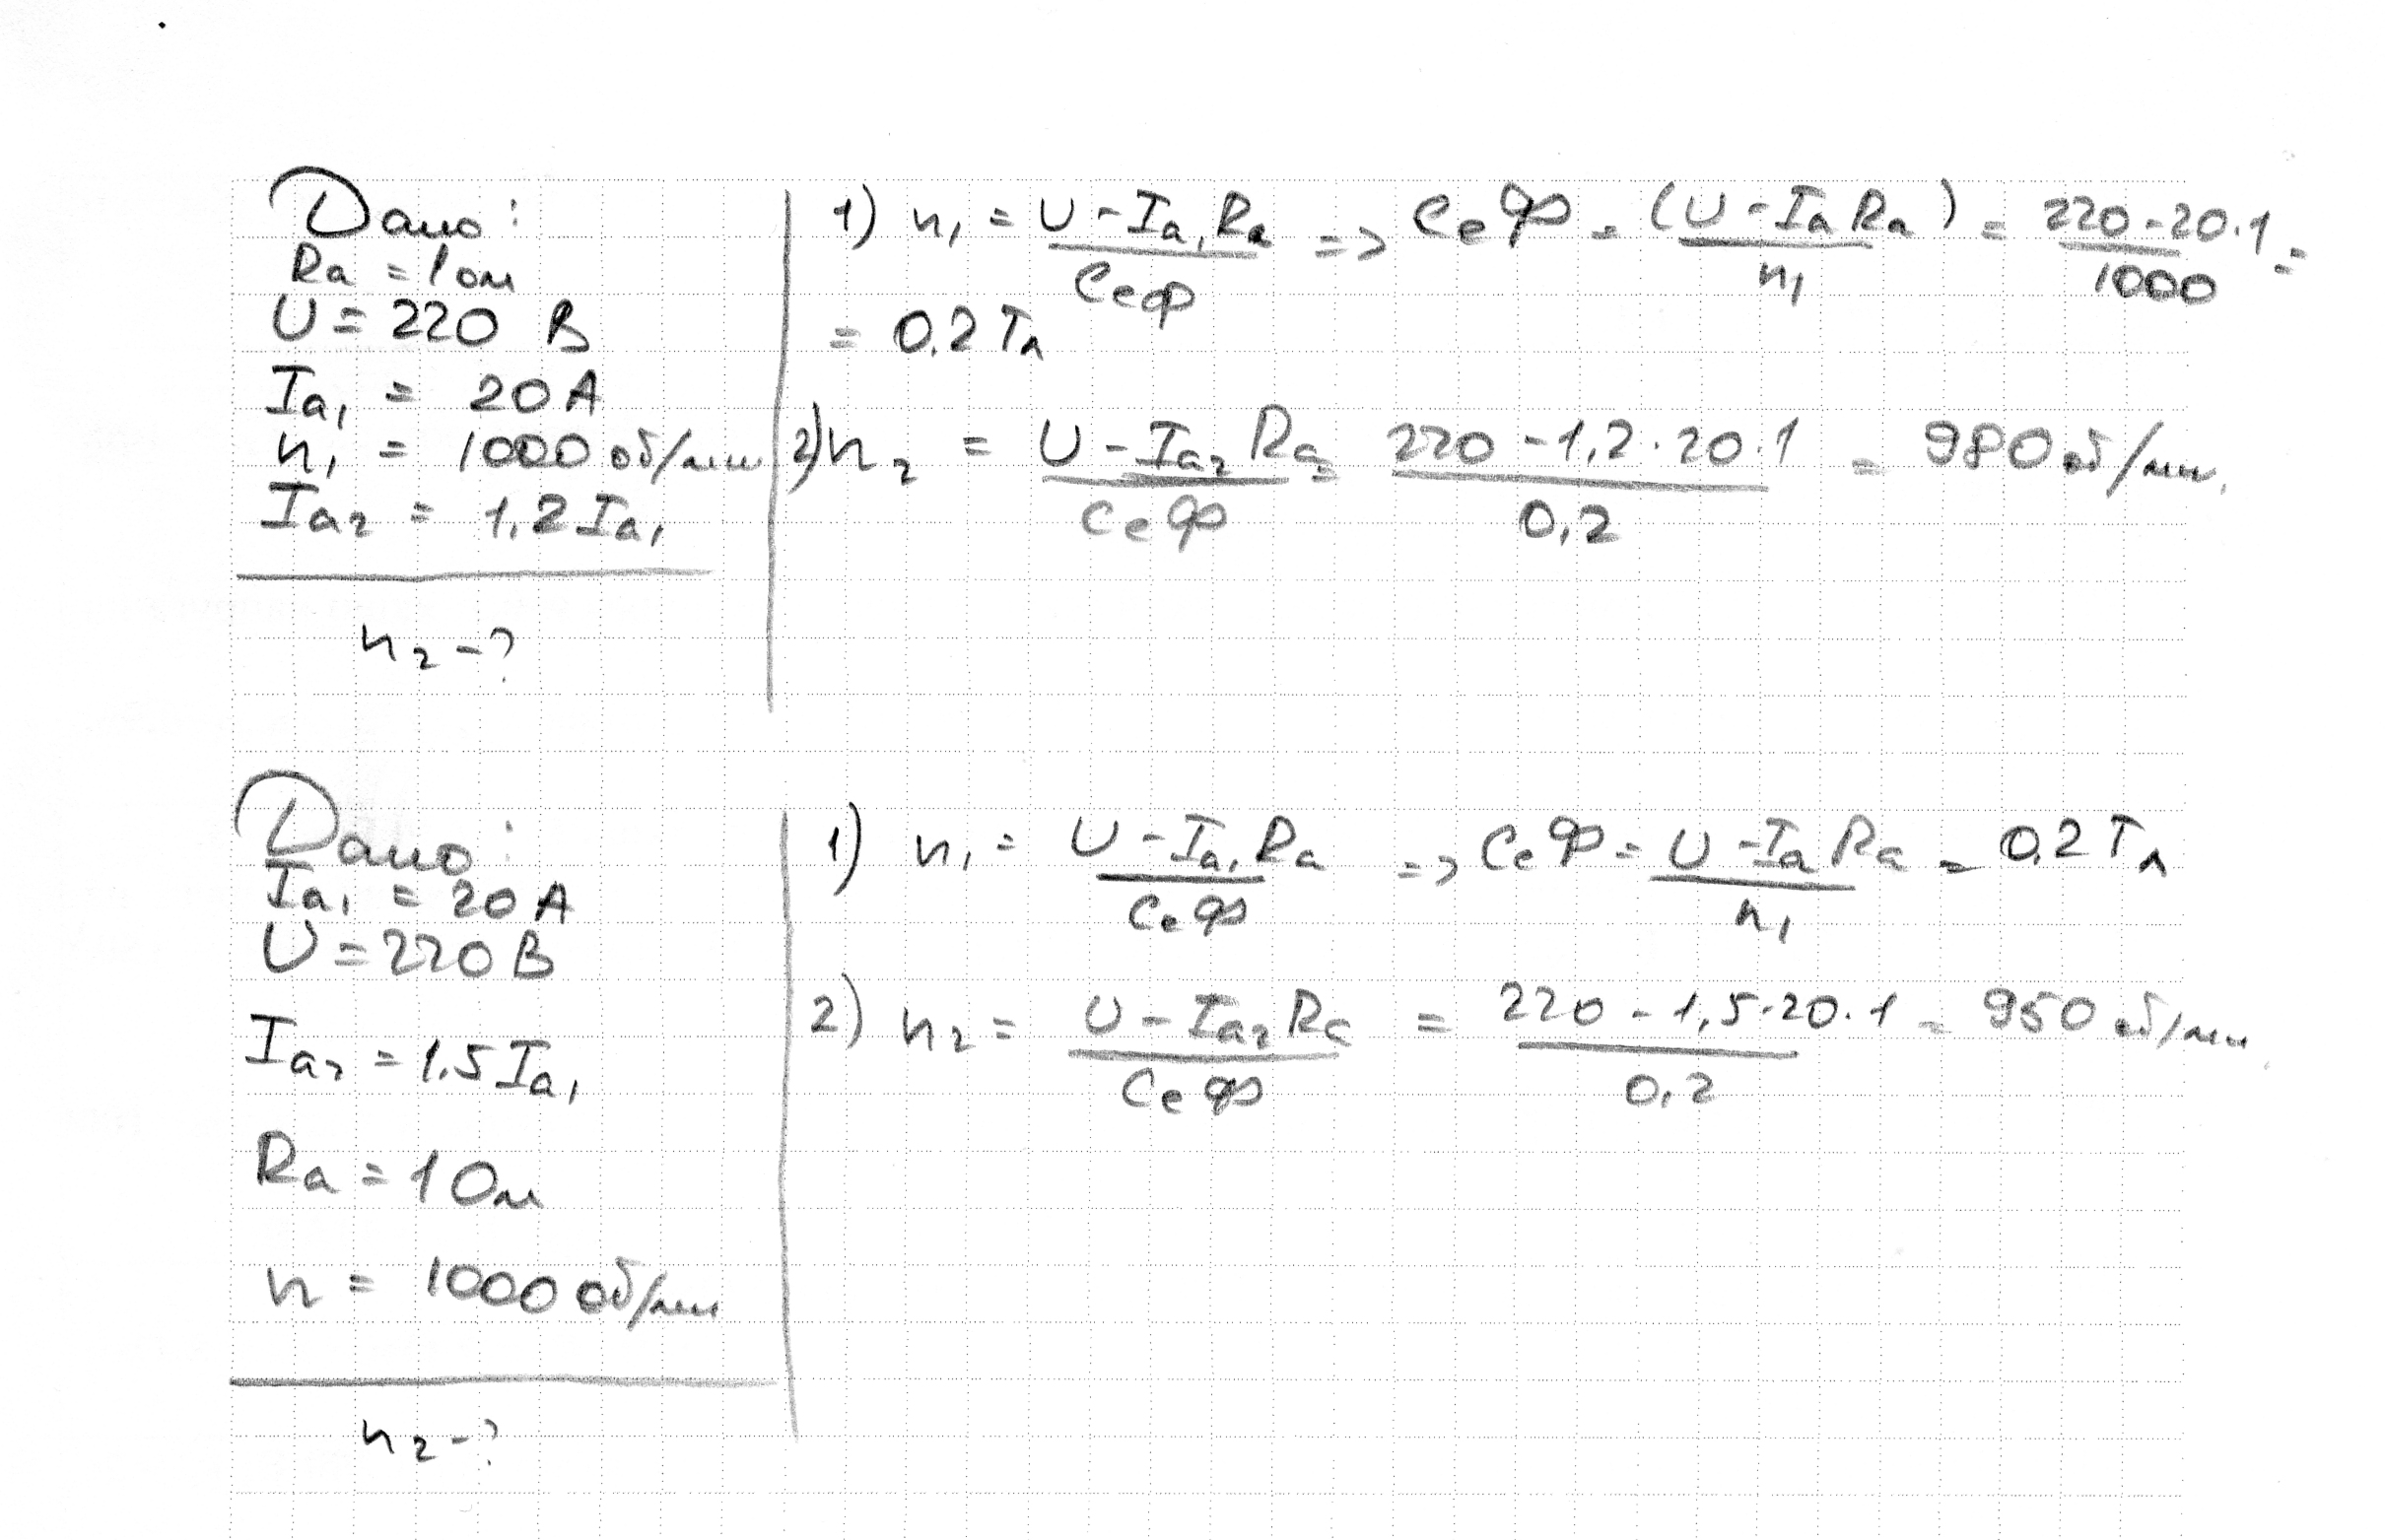 Дано:
Ra = 1 ом
U = 220 В
Ia₁ = 20 А
n₁ = 1000 об/мин
Ia₂ = 1,2 Ia₁
n₂ - ?
1) n₁ = (U - Ia₁Ra)/(CeФ) => CeФ = (U - IaRa)/n₁ = (220 - 20·1)/1000 =
= 0,2 Тл
2) n₂ = (U - Ia₂Ra)/(CeФ) = (220 - 1,2·20·1)/0,2 = 980 об/мин.
Дано:
Ia₁ = 20 А
U = 220 В
Ia₂ = 1,5 Ia₁
Ra = 1 Ом
n = 1000 об/мин
n₂ - ?
1) n₁ = (U - Ia₁Ra)/(CeФ) => CeФ = (U - IaRa)/n₁ = 0,2 Тл
2) n₂ = (U - Ia₂Ra)/(CeФ) = (220 - 1,5·20·1)/0,2 = 950 об/мин.